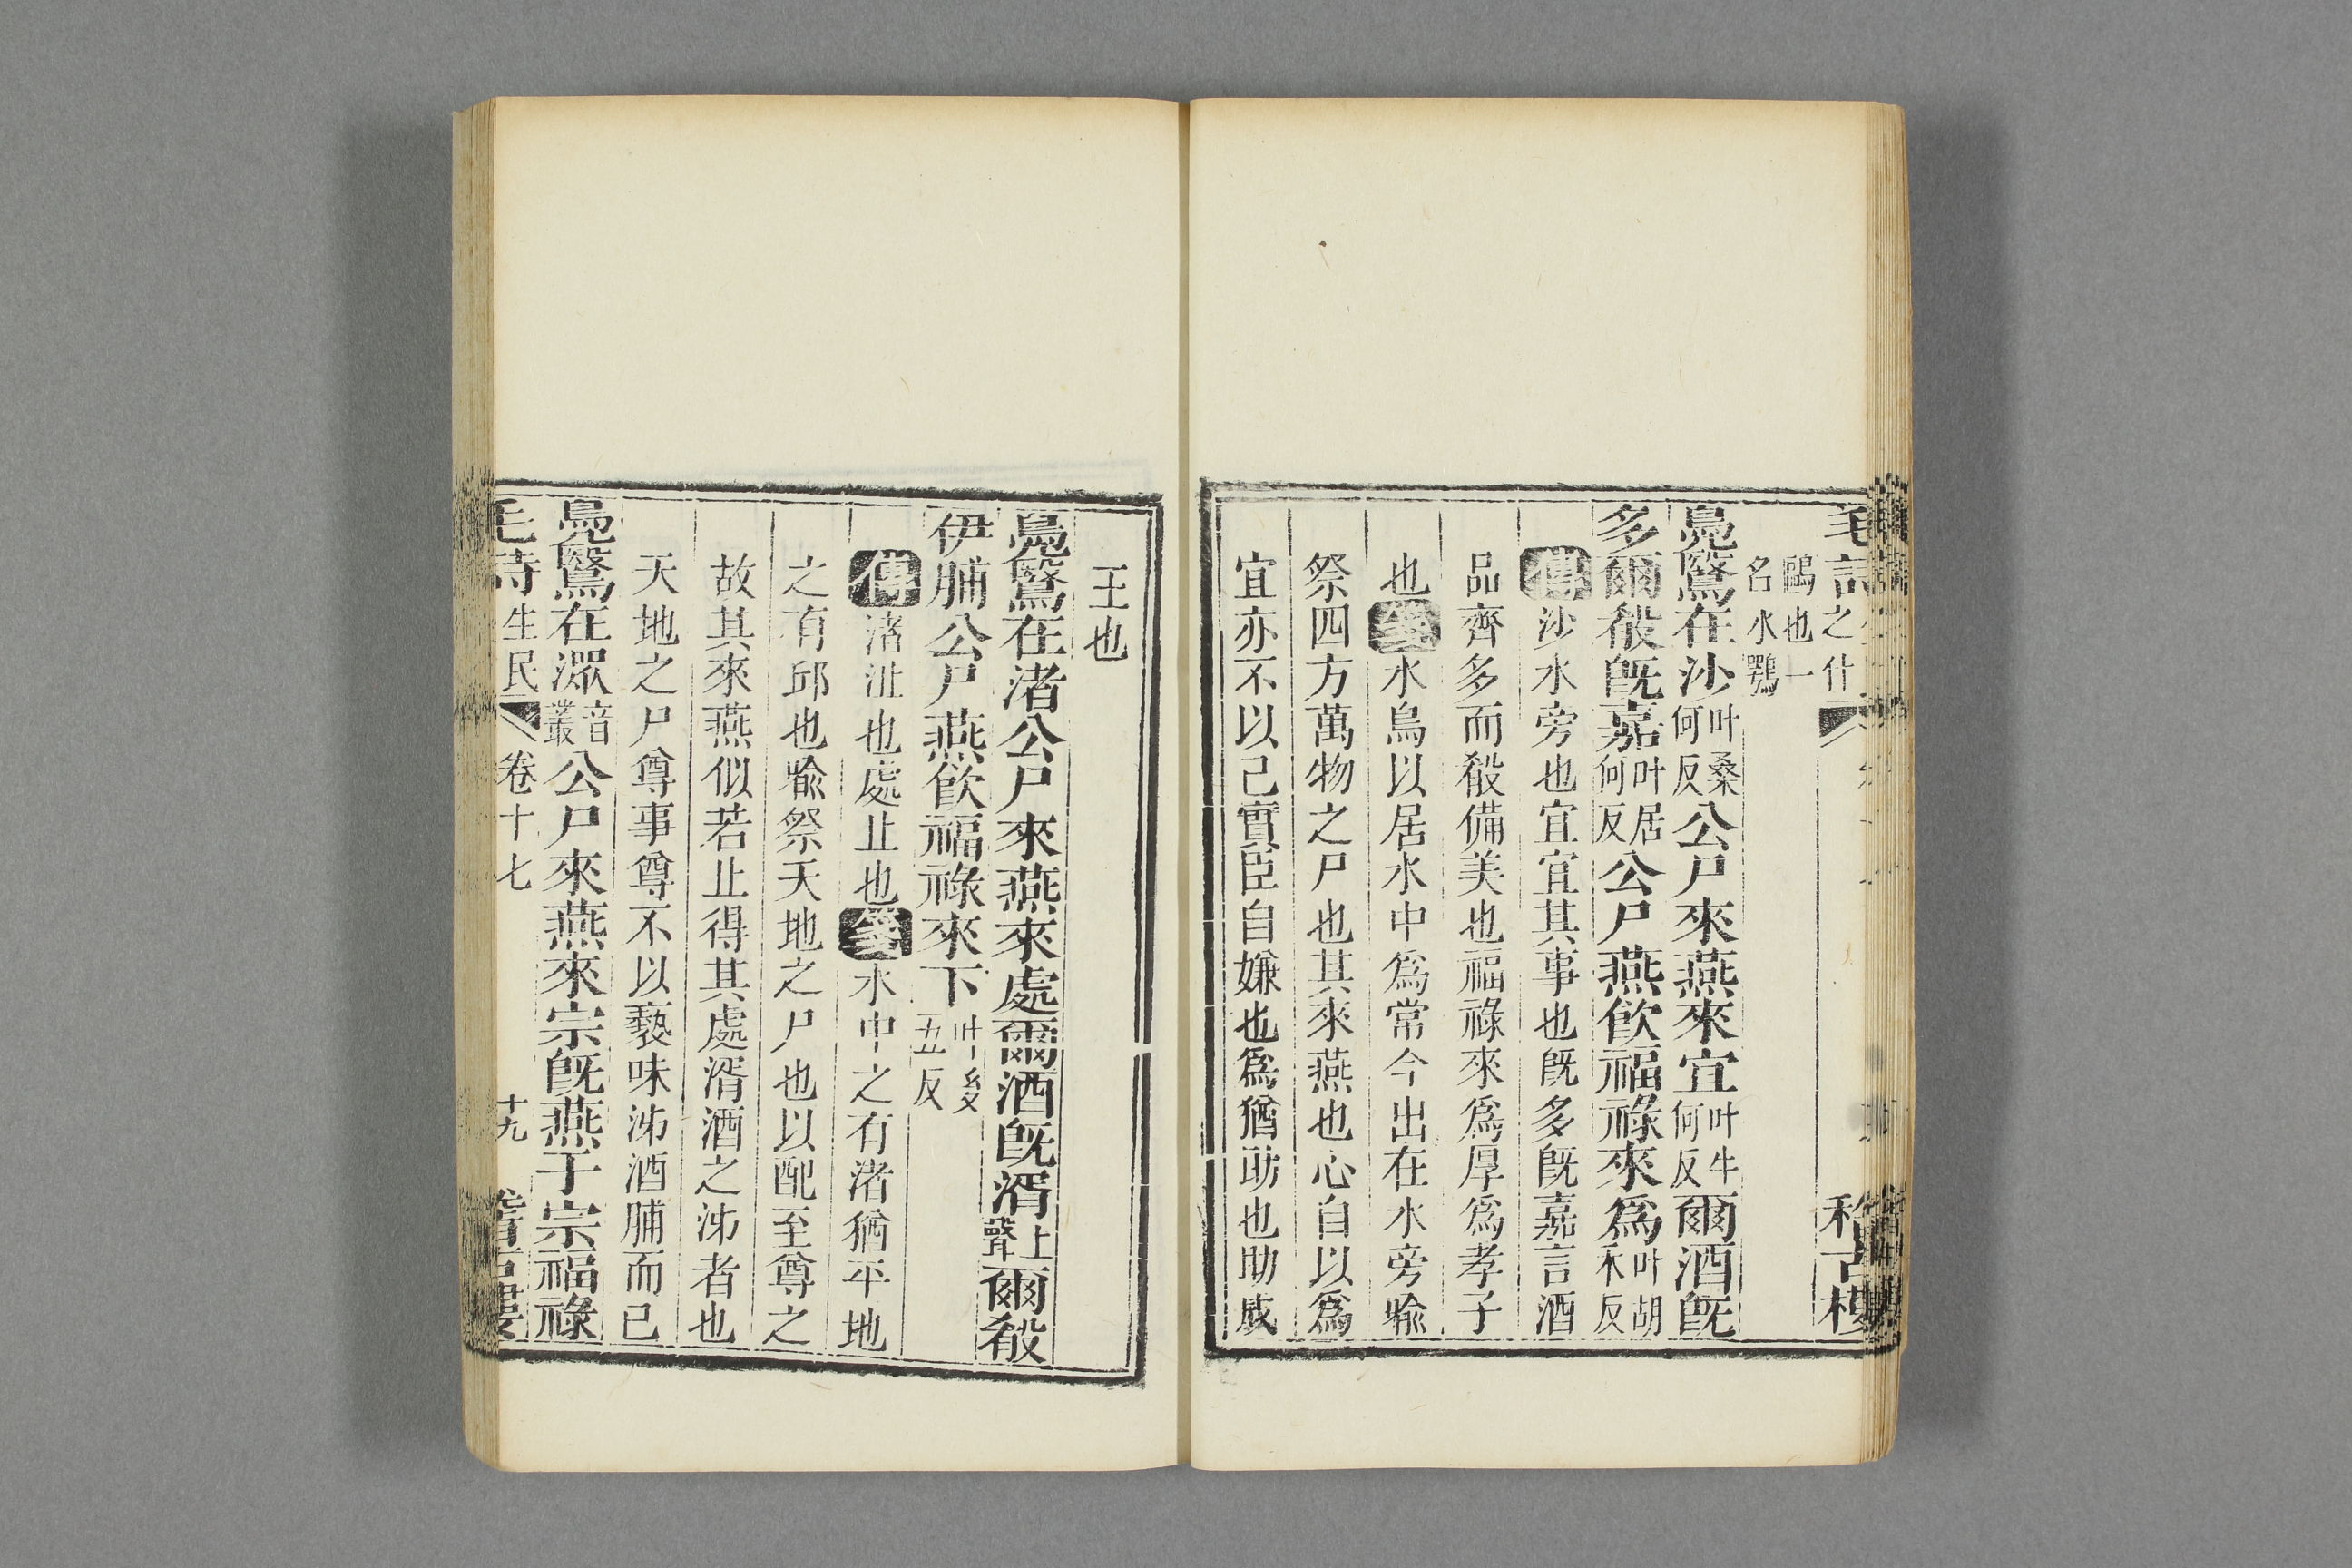 毛詩
之什
鷗也一
名水鶚
鳧鷖在沙叶桑何反公尸來燕來宜叶牛何反爾酒旣
多爾殽旣嘉叶居何反公尸燕飮福祿來爲叶胡禾反
傳沙水旁也宜宜其事也旣多旣嘉言酒
品齊多而殽備美也福祿來爲厚爲孝子
也箋水鳥以居水中爲常今出在水旁喻
祭四方萬物之尸也其來燕也心自以爲
宜亦不以己實臣自嫌也爲猶助也助成
王也
鳧鷖在渚公尸來燕來處爾酒旣湑上聲爾殽
伊脯公尸燕飮福祿來下叶後五反
傳渚沚也處止也箋水中之有渚猶平地
之有邱也喻祭天地之尸也以配至尊之
故其來燕似若止得其處湑酒之泲者也
天地之尸尊事尊不以褻味泲酒脯而已
鳧鷖在潀音叢公尸來燕來宗旣燕于宗福祿
毛詩生民 卷十七 十九